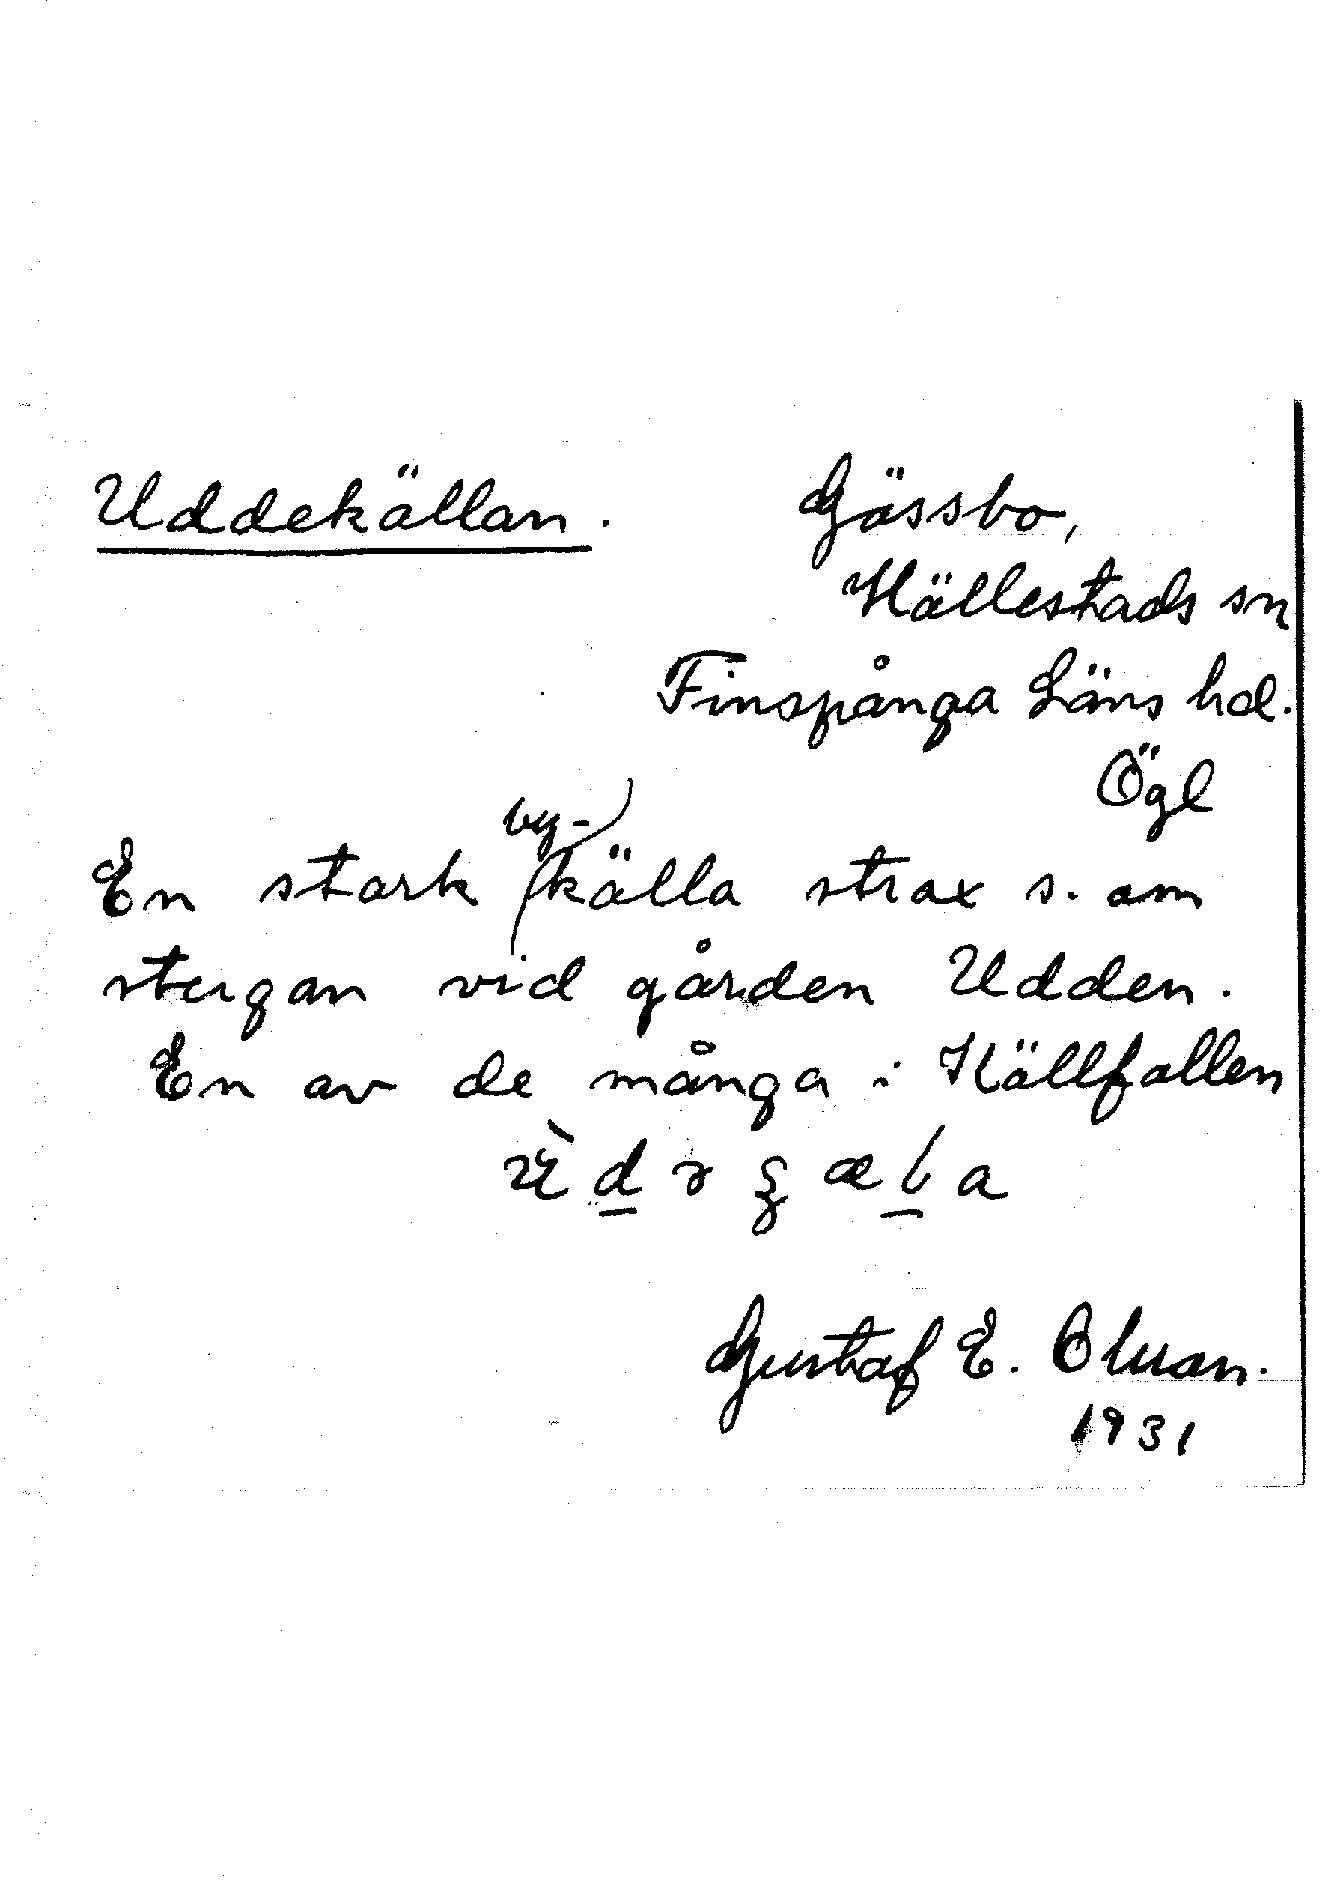 Uddekällan.
Gässbo,
Hällestads sn
Finspånga Läns hd.
Ögl
by-
En stark källa strax s. om
stergan vid gården Udden.
En av de många i Källfallen
Gustaf E. Olsson.
1931